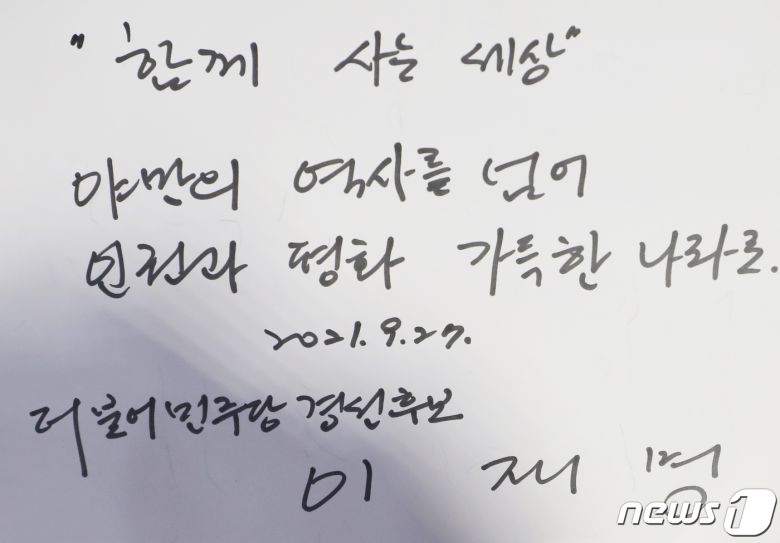 "함께 사는 세상"
야만의 역사를 넘어
인권과 평화 가득한 나라로.
2021. 9. 27.
더불어민주당 경선후보
이 재 명
news1